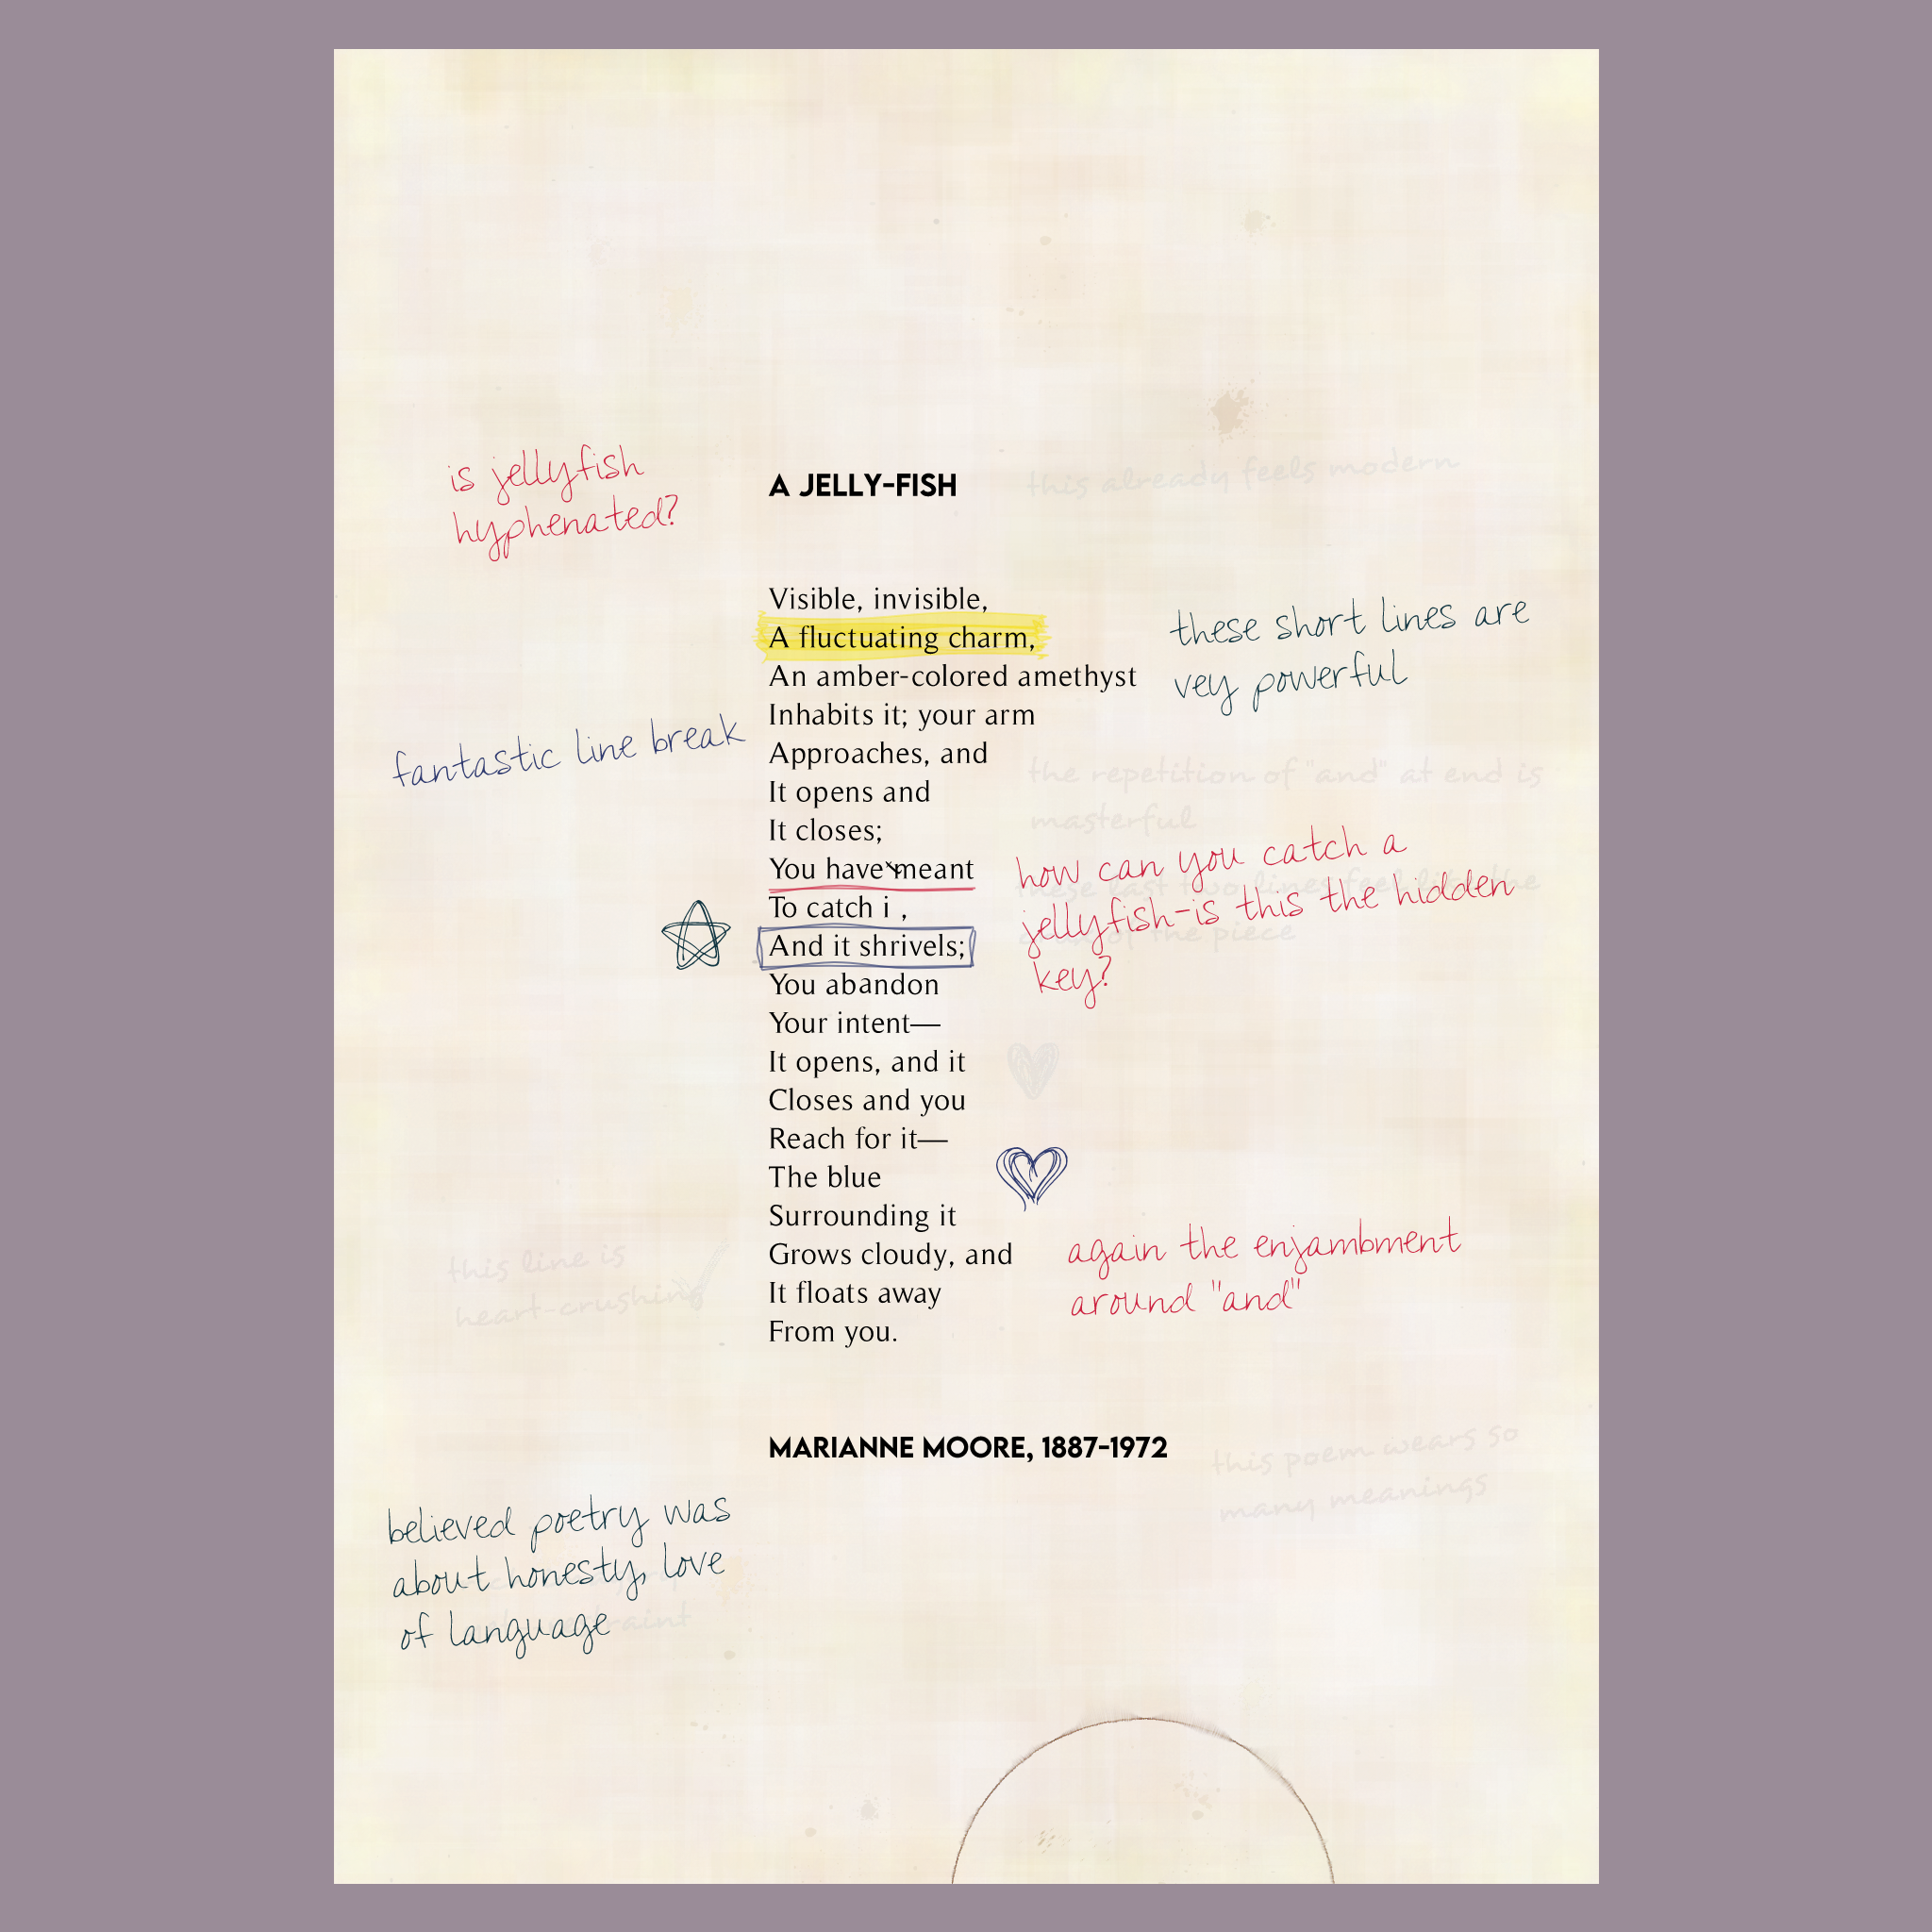 is jellyfish
hyphenated?
A JELLY-FISH
this already feels modern
Visible, invisible,
A fluctuating charm,
An amber-colored amethyst
Inhabits it; your arm
Approaches, and
It opens and
It closes;
You have meant
To catch i ,
And it shrivels;
You abandon
Your intent—
It opens, and it
Closes and you
Reach for it—
The blue
Surrounding it
Grows cloudy, and
It floats away
From you.
these short lines are
vey powerful
fantastic line break
the repetition of "and" at end is
masterful
how can you catch a
jellyfish-is this the hidden
key?
these last two lines feel like the
of the piece
again the enjambment
around "and"
this line is
heart-crushing
MARIANNE MOORE, 1887-1972
this poem wears so
many meanings
believed poetry was
about honesty, love
of language